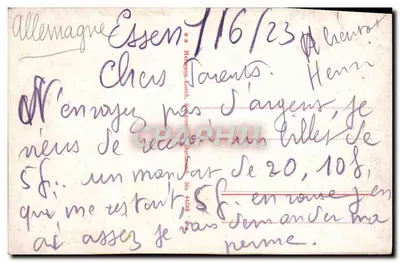 Allemagne
Essen 1/6/23
A bientot
Henri
Chers Parents.
N'envoyez pas d'argent, je
viens de recevoir un billet de
5f.. un mandat de 20, 10f,
que me restant, 5f. en rouse j'en
ai assez je vais demander ma
perme.